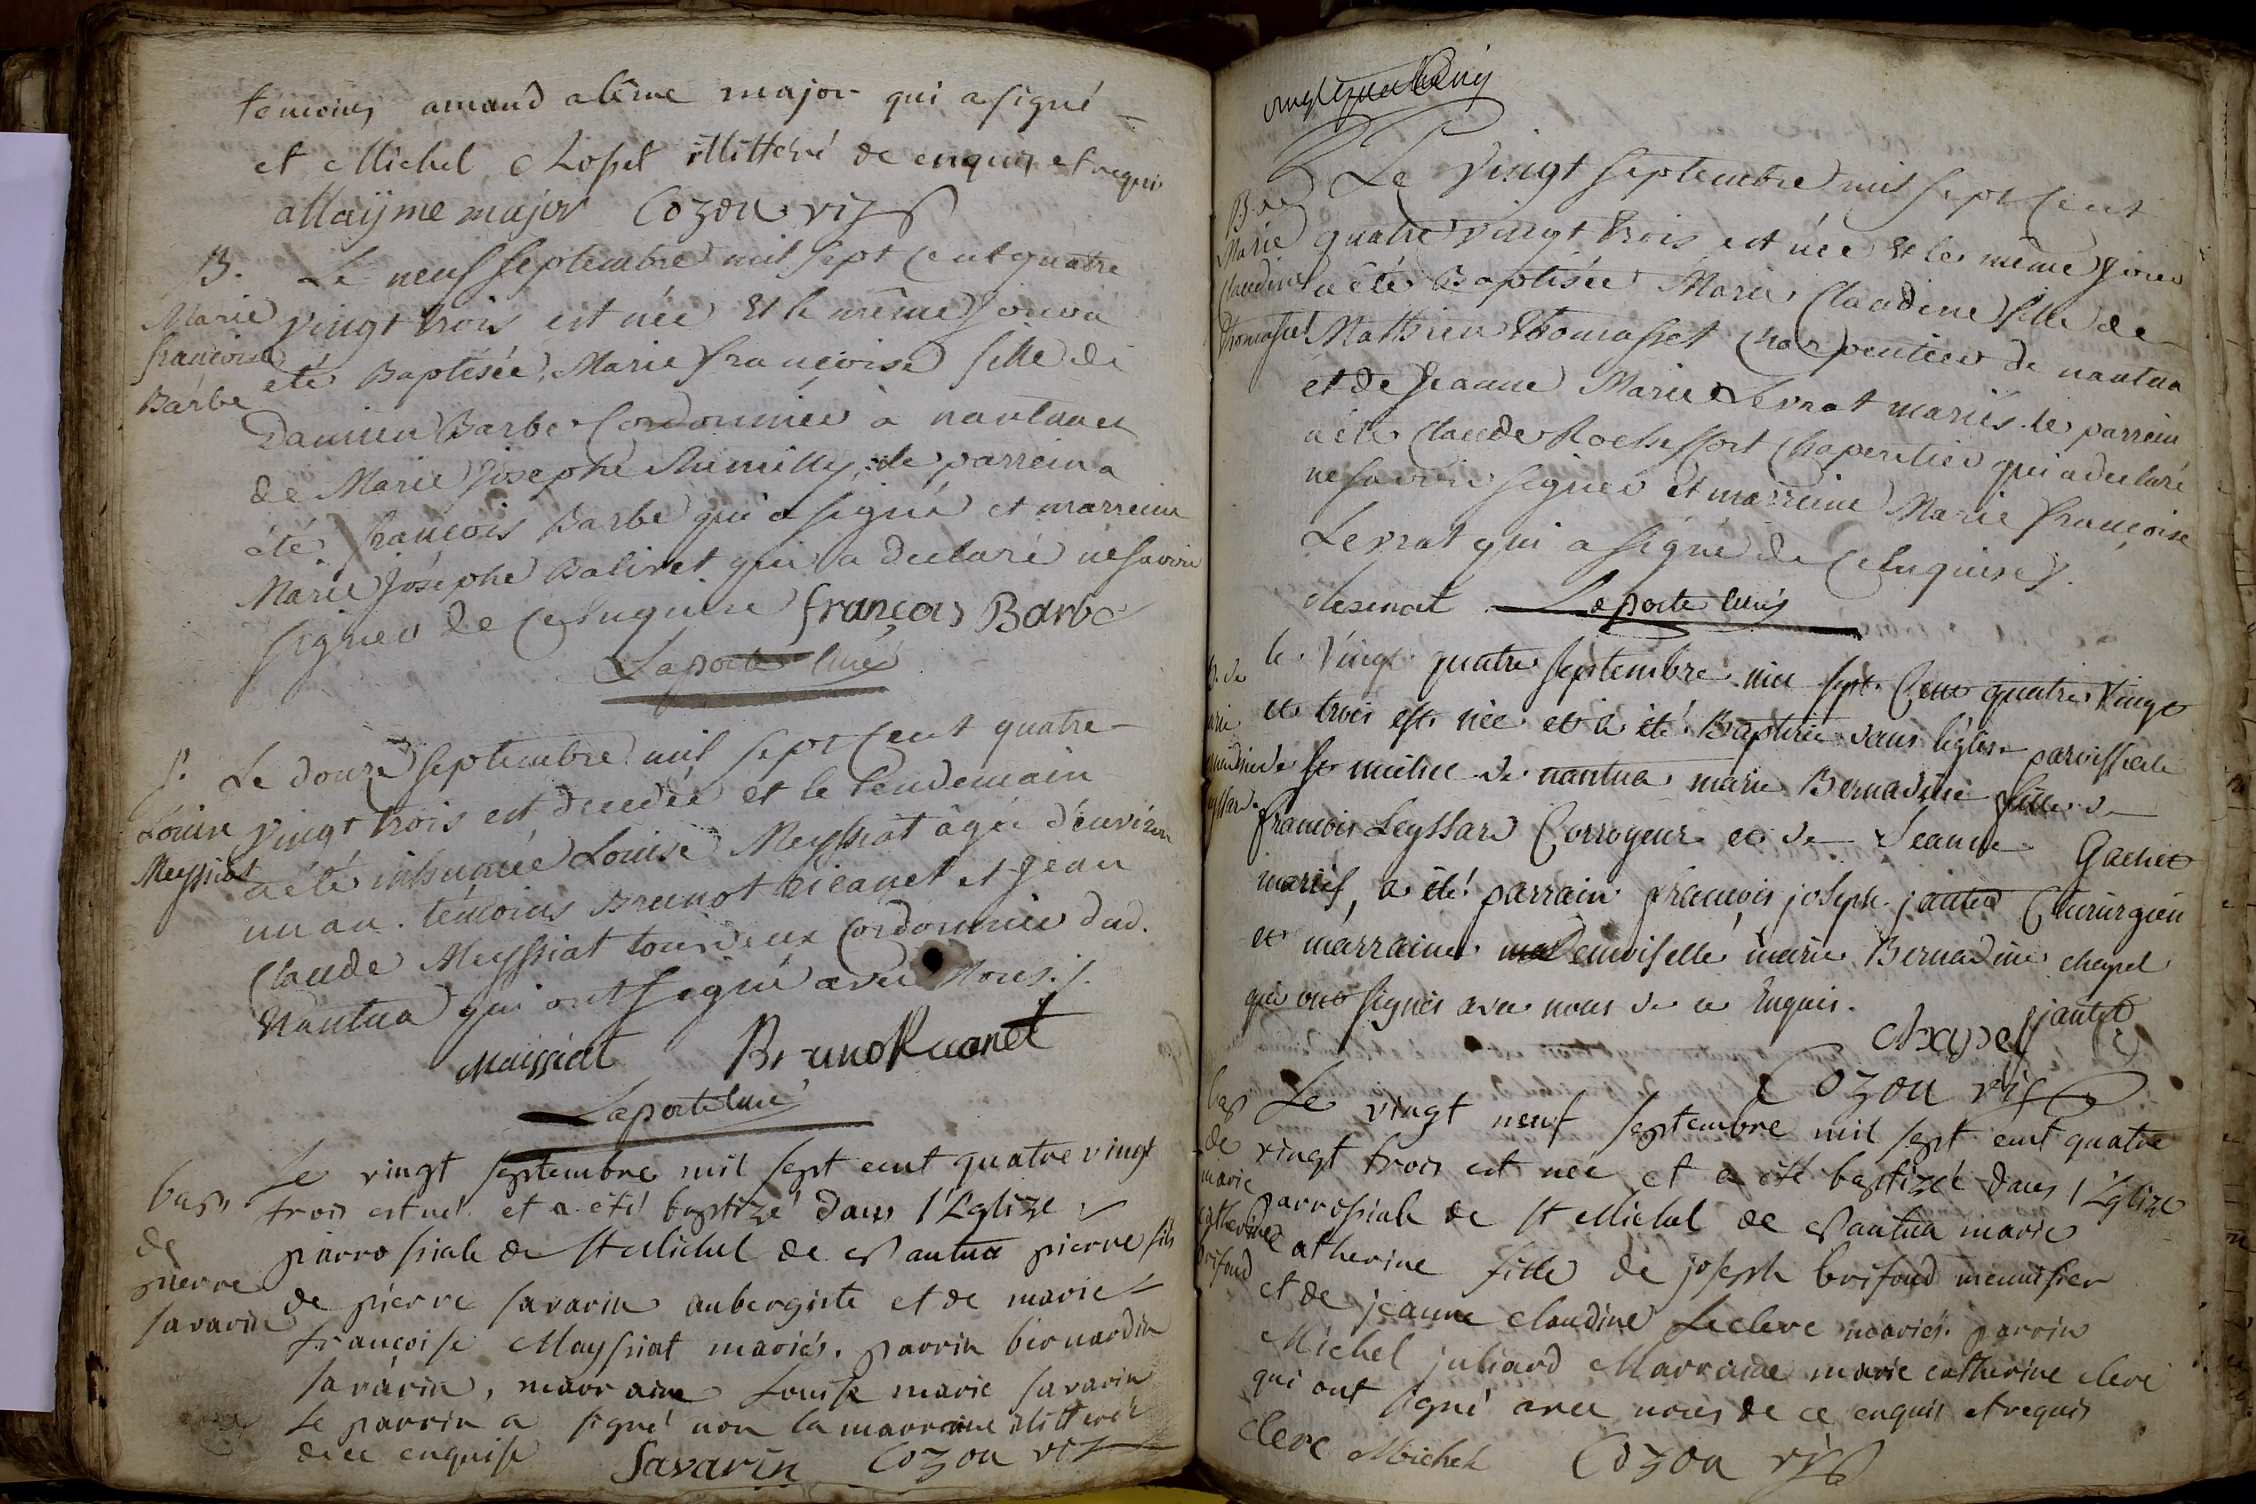 temoins amand alême major qui a signé
et Michel Chosset illitteré de enquis et requis
attaÿme major Cozon vic
B. Le neuf septembre mil sept cent quatre
Marie vingt trois est née et le même jour a
françoise été Baptisée Marie françoise fille de
Barbe Damien Barbe Cordonnier à nantua et
de Marie Josephe Rumilly, le parrein a
été françois Barbe qui a signé et marreine
Marie Josephe Balivet qui a declaré ne savoir
signer de ce enquise françois Barbe
Laporte curé
S. Le douze septembre mil sept cent quatre
Louise vingt trois est decedée et le lendemain
Meyssiat a été inhumée Louise Meyssiat âgée d'environ
un an. témoins Brunot et Jean
Claude Meyssiat tous deux Cordonnier dud.
Nantua qui ont signé avec Nous ./.
Maissiat Bruno Ruanet
Laporte curé
Le vingt septembre mil sept cent quatre vingt
bap trois est né et a été baptizé dans l'Eglize
de parrossiale de St Michel de Nantua pierre fils
pierre de pierre savarin aubergiste et de marie
savarin françoise Mayssiat mariés. parrin bernardin
savarin, marraine Louise marie savarin
Le parrin a signé non la marraine illitterée
de ce enquise Savarin Cozon vic
vingt quatre
Le vingt septembre mil sept cent
B. de quatre vingt trois est née et le même jour
Marie Claudine a été Baptisée Marie Claudine fille de
Thomasset Mathieu Thomasset Charpentier de nantua
et de Jeanne Marie Levrat mariés. le parrein
a été Claude Rochefort Chapentier qui a declaré
ne savoir signer et marreine Marie françoise
Levrat qui a signé de ce enquise ./.
Laporte curé
B. de le vingt quatre septembre mil sept Cent quatre Vingt
marie et trois est née et a été Baptisée dans l'église paroissiale
Bernadine de St michel de nantua marie Bernadine fille de
Leyssard françois Leyssard Corroyeur et de Jeanne Gachet
mariés, a été parrain françois joseph jantet Chirurgien
et marraine mademoiselle marie Bernadine chapel
qui ont signés avec nous de ce Enquis.
Chapel jantet
Cozon vic
bap Le vingt neuf septembre mil sept cent quatre
de vingt trois est née et a été baptizée dans l'Eglize
marie parrossiale de St Michel de Nantua marie
catherine Catherine fille de joseph brifoud menuisier
brifoud et de jeanne claudine Leclerc mariés. parrin
Michel juliard Marraine marie catherine clerc
qui ont signé avec nous de ce enquis et requis
Clerc Michel Cozon vic